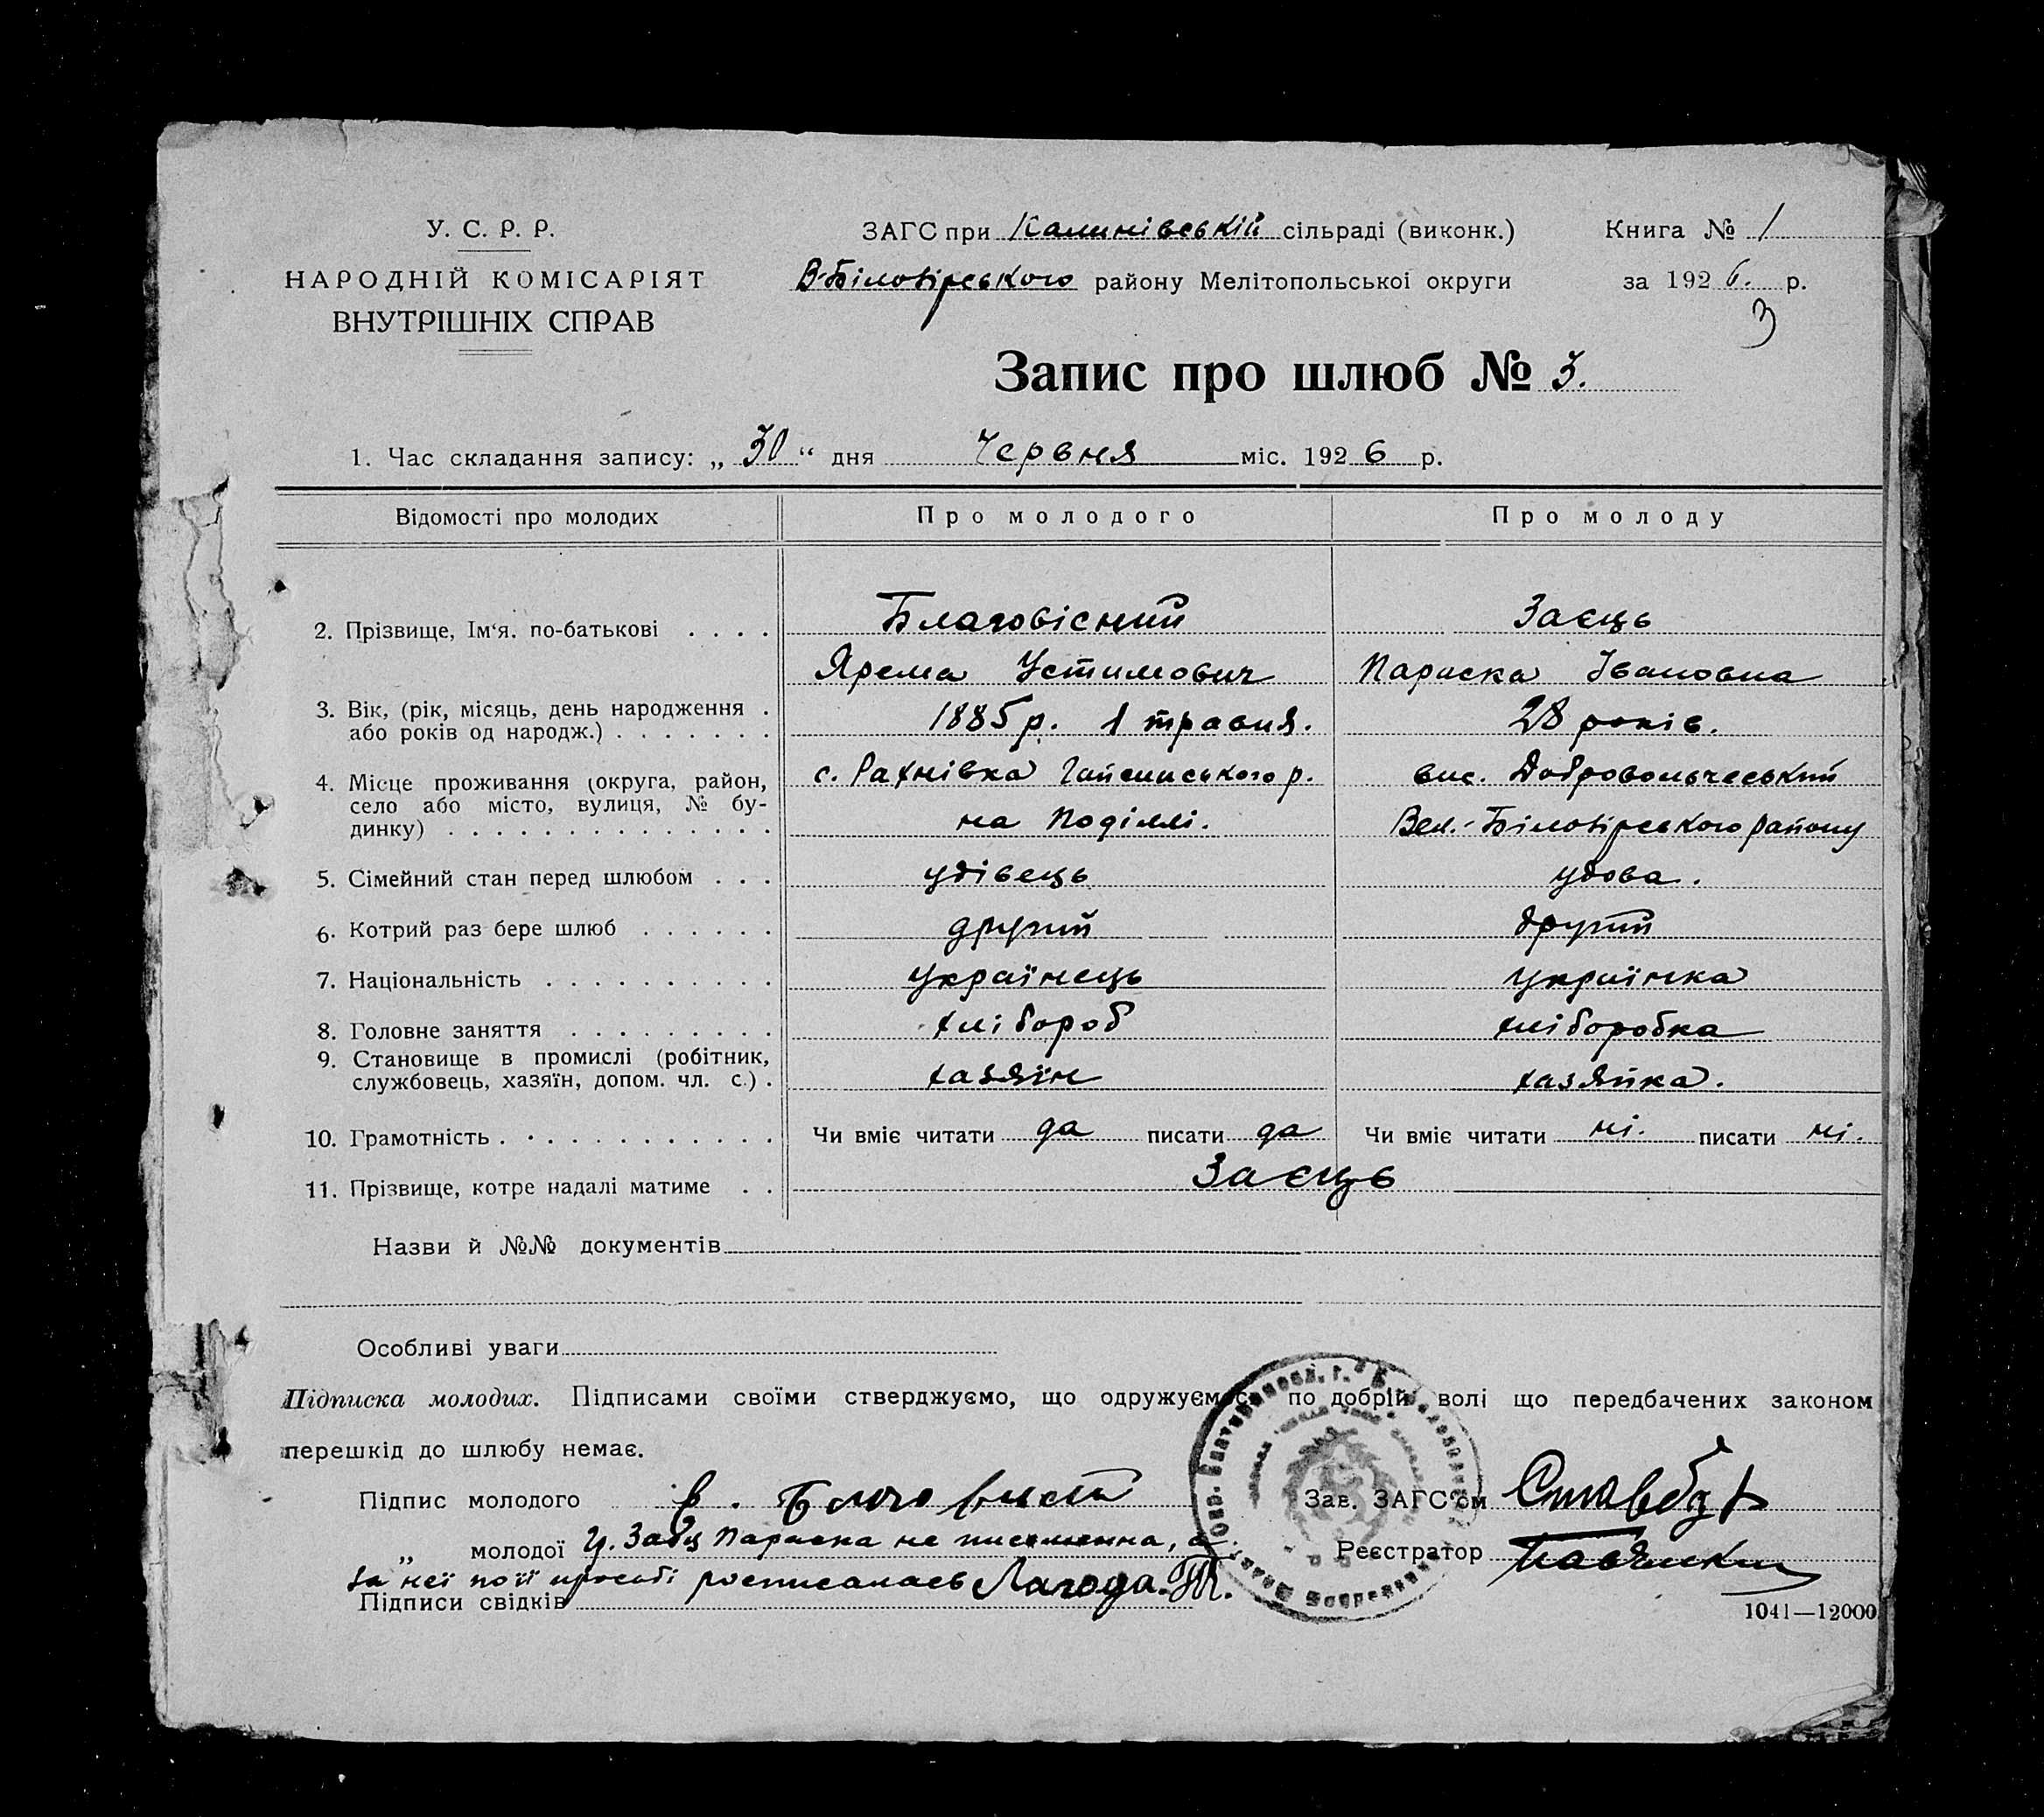 У. С. Р. Р.
НАРОДНІЙ КОМІСАРІЯТ
ВНУТРІШНІХ СПРАВ
ЗАГС при Калинівській сільраді (виконк.)
В-Білозірського району Мелітопольської округи
Книга № 1
за 1926. р.
3
Запис про шлюб № 3.
1. Час складання запису: „30“ дня Червня міс. 1926 р.
Відомості про молодих Про молодого Про молоду
2. Прізвище, Ім‘я. по-батькові . . . . Благовісний Заєць
Ярема Устимович Параска Івановна
3. Вік, (рік, місяць, день народження . 1885 р. 1 травня. 28 років.
або років од народж.) . . . . . . .
4. Місце проживання (округа, район, с. Рахнівка Гайсинського р. вис. Добровольчеський
село або місто, вулиця, № бу-
динку) . . . . . . . . . . . . . . на Поділлі. Вел.-Білозірського району
5. Сімейний стан перед шлюбом . . . удівець удова.
6. Котрий раз бере шлюб . . . . . . другий другий
7. Національність . . . . . . . . . . українець українка
8. Головне заняття . . . . . . . . . хлібороб хліборобка
9. Становище в промислі (робітник,
службовець, хазяїн, допом. чл. с.) . хазяїн хазяйка.
10. Грамотність . . . . . . . . . . . . Чи вміє читати да писати да Чи вміє читати ні. писати ні.
11. Прізвище, котре надалі матиме . . Заєць
Назви й №№ документів
Особливі уваги
Підписка молодих. Підписами своїми стверджуємо, що одружуємось по добрій волі що передбачених законом
перешкід до шлюбу немає.
Підпис молодого Зав. ЗАГС‘ом
„ молодої Параска не письменна, а Реєстратор
за неї по її просьбі росписалась Лагода.
Підписи свідків
1041—12000